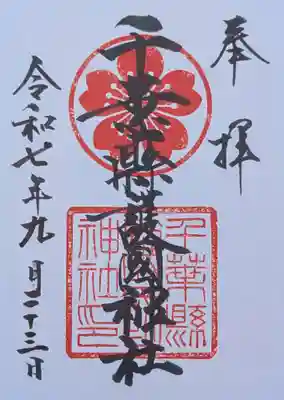 奉拝
千葉縣護國神社
千葉縣
神社印
令和七年九月二十三日